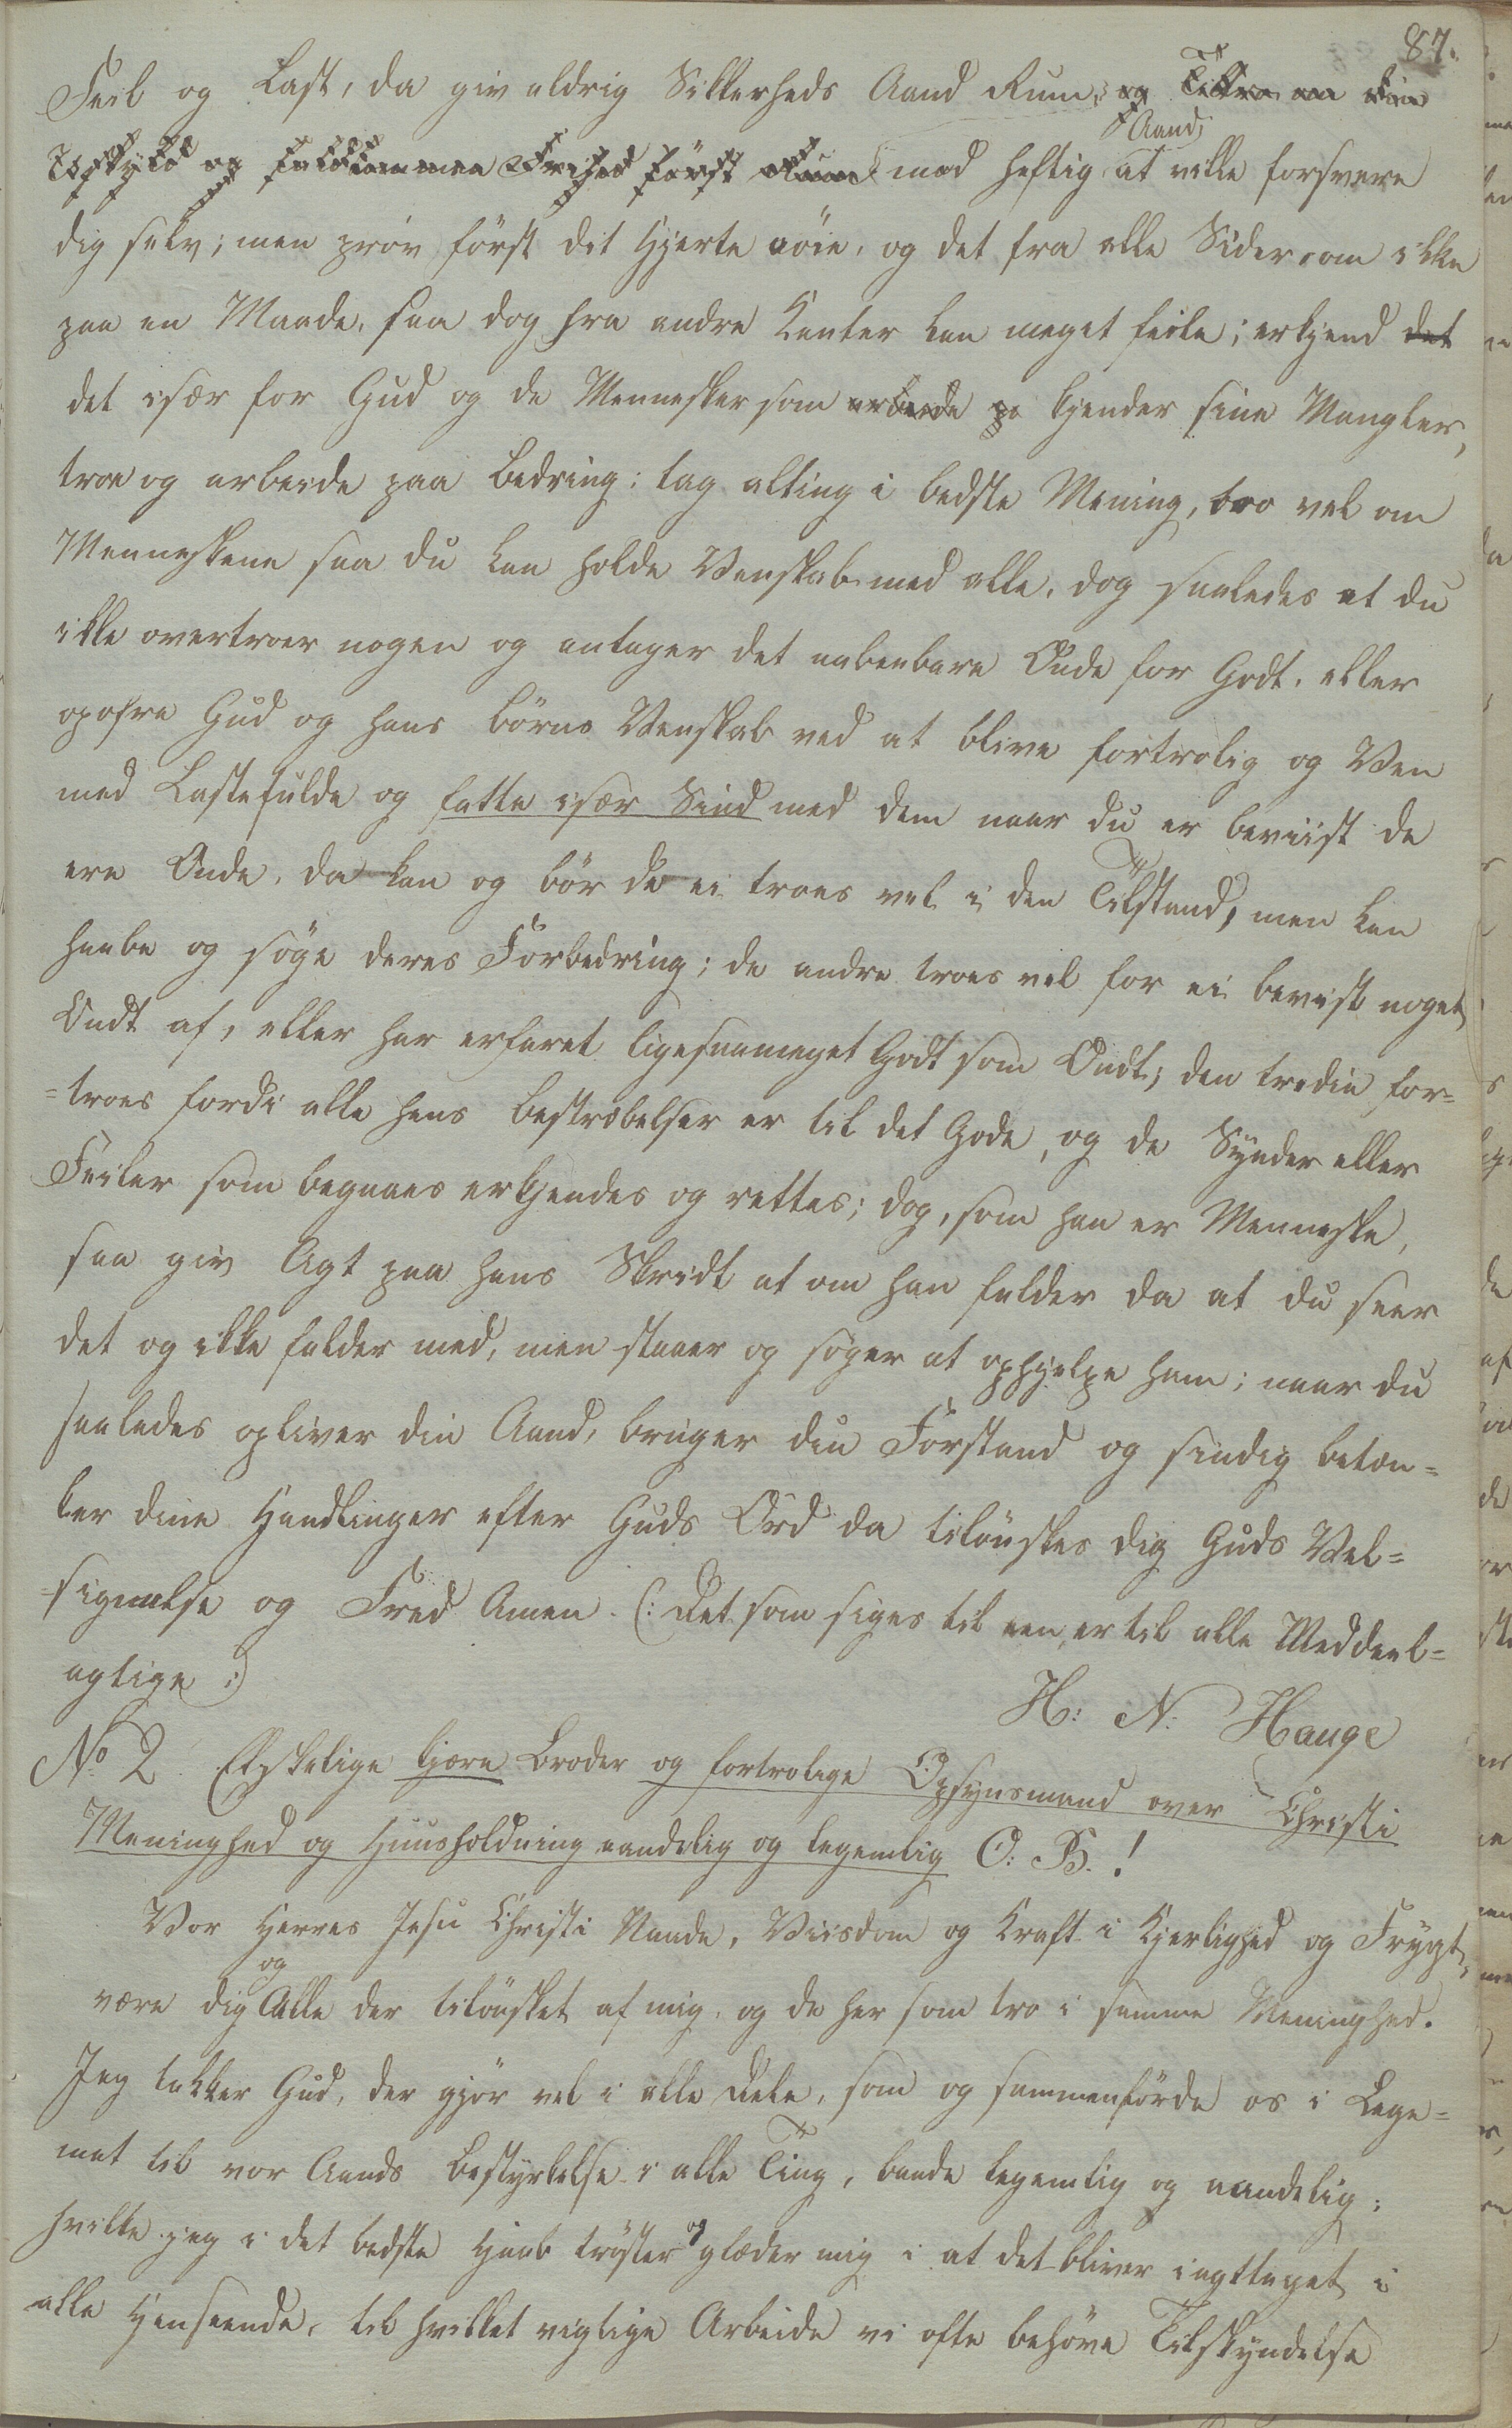 87.
Feil og Last, da giv aldrig Sikkerheds Aand Rum, og Tiltroe om din
Uskyld og fuldkommen Frihed först Rum med heftig Aand at ville forsvare
dig selv; men pröv först dit Hjerte nöie, og det fra alle Sider, om ikke
paa en Maade, saa dog fra andre Kanter kan meget feile; erkjend det
det især for Gud og de Mennesker som arbeide på kjender sine Mangler,
troe og arbeide paa Bedring; tag alting i bedste Mening, tro vel om
Menneskene saa du kan holde Venskab med alle, dog saaledes at du
ikke overtroer nogen og antager det aabenbare Onde for Godt, eller
opofre Gud og hans Börns Venskab ved at blive fortrolig og Ven
med Lastefulde og fatte især Sind med dem naar du er beviist de
ere Onde, da kan og bör de ei troes vel i den Tilstand, men kan
haabe og söge deres Forbedring; de andre troes vel for ei bevist noget
Ondt af, eller har erfaret ligesaameget Godt som Ondt; den tredie for=
=troes fordi alle hans Bestræbelser er til det Gode, og de Synder eller
Feiler som begaaes erkjendes og rettes; dog, som han er Menneske,
saa giv Agt paa hans Skridt at om han falder da at du seer
det og ikke falder med, men staaer og söger at ophjelpe ham; naar du
saaledes opliver din Aand, bruger din Forstand og sindig betæn=
ker dine Handlinger efter Guds Ord da tilönskes dig Guds Vel=
=signelse og Fred Amen. (: Det som siges til een, er til alle Meddeel=
agtige :)
H: N: Hauge
No 2. Elskelige kjære Broder og fortrolige Opsynsmand over Christi
Meninghed og Huusholdning aandelig og legemlig O: B.!
Vor Herres Jesu Christi Naade, Viisdom og Kraft i Kjerlighed og Frygt,
være dig og Alle der tilönsket af mig, og de her som tro i samme Meninghed.
Jeg takker Gud, der gjör vel i alle Dele, som og sammenförde os i Lege=
met til vor Aands Bestyrkelse i alle Ting, baade legemlig og aandelig;
hvilke jeg i det bedste Haab tröster og glæder mig i at det bliver iagttaget i
alle Henseende, til hvilket vigtige Arbeide vi ofte behöve Tilskyndelse